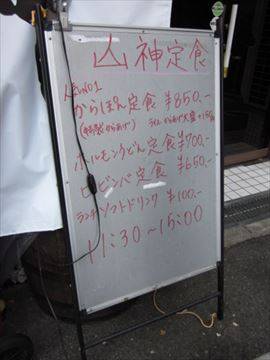 山神定食
人気NO1
からぽん定食 ¥850.-
ホルモンうどん定食 ¥700.-
ビビンバ定食 ¥650.-
ランチソフトドリンク ¥100.-
11:30~15:00